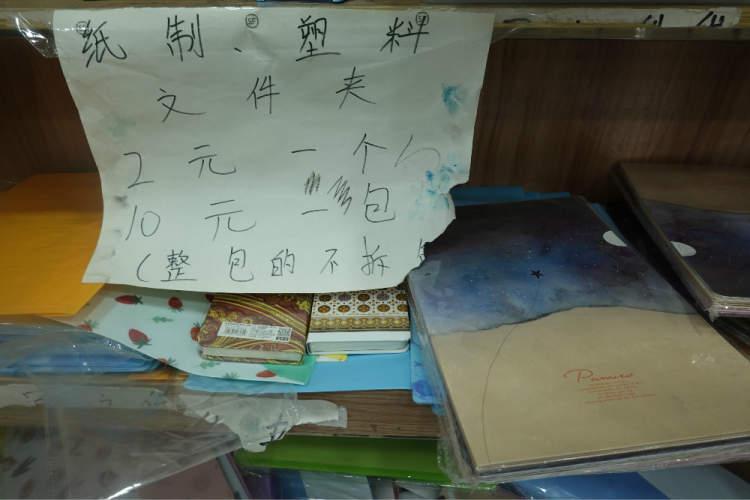 纸制、塑料
文件夹
2元一个
10元一包
(整包的不拆